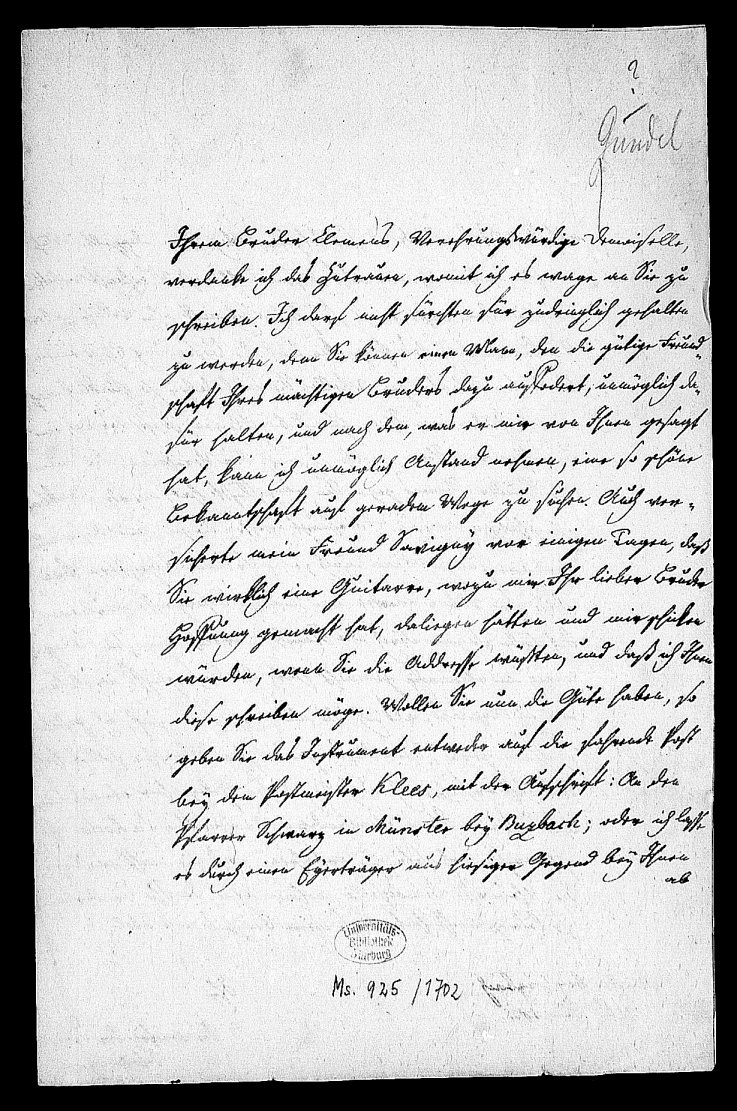 ?
Gundel
Ihrem Bruder Clemens, Verehrungswürdige Demoiselle,
verdanke ich das Zutrauen, womit ich es wage an Sie zu
schreiben. Ich darf nicht fürchten für zudringlich gehalten
zu werden, denn Sie können einen Mann, den die gütige Freund-
schaft Ihres mächtigen Bruders dazu auffodert, unmöglich da-
für halten, und nach dem, was er mir von Ihnen gesagt
hat, kann ich unmöglich Anstand nehmen, eine so schöne
Bekanntschaft auf geradem Wege zu suchen. Auch ver-
sicherte mein Freund Savigny vor einigen Tagen, daß
Sie wirklich eine Guitarre, wozu mir Ihr lieber Bruder
Hoffnung gemacht hat, daliegen hätten und mir schicken
würden, wenn Sie die Addresse wüßten, und daß ich Ihnen
diese schreiben möge. Wollen Sie nun die Güte haben, so
geben Sie das Instrument entweder auf die fahrende Post
bey dem Postmeister Klees, mit der Aufschrift: An den
Pfarrer Schwarz in Münster bey Buzbach; oder ich lasse
es durch einen Eyerträger aus hiesiger Gegend bey Ihnen
ab
Universitäts-
Bibliothek
Marburg
Ms. 925/1702